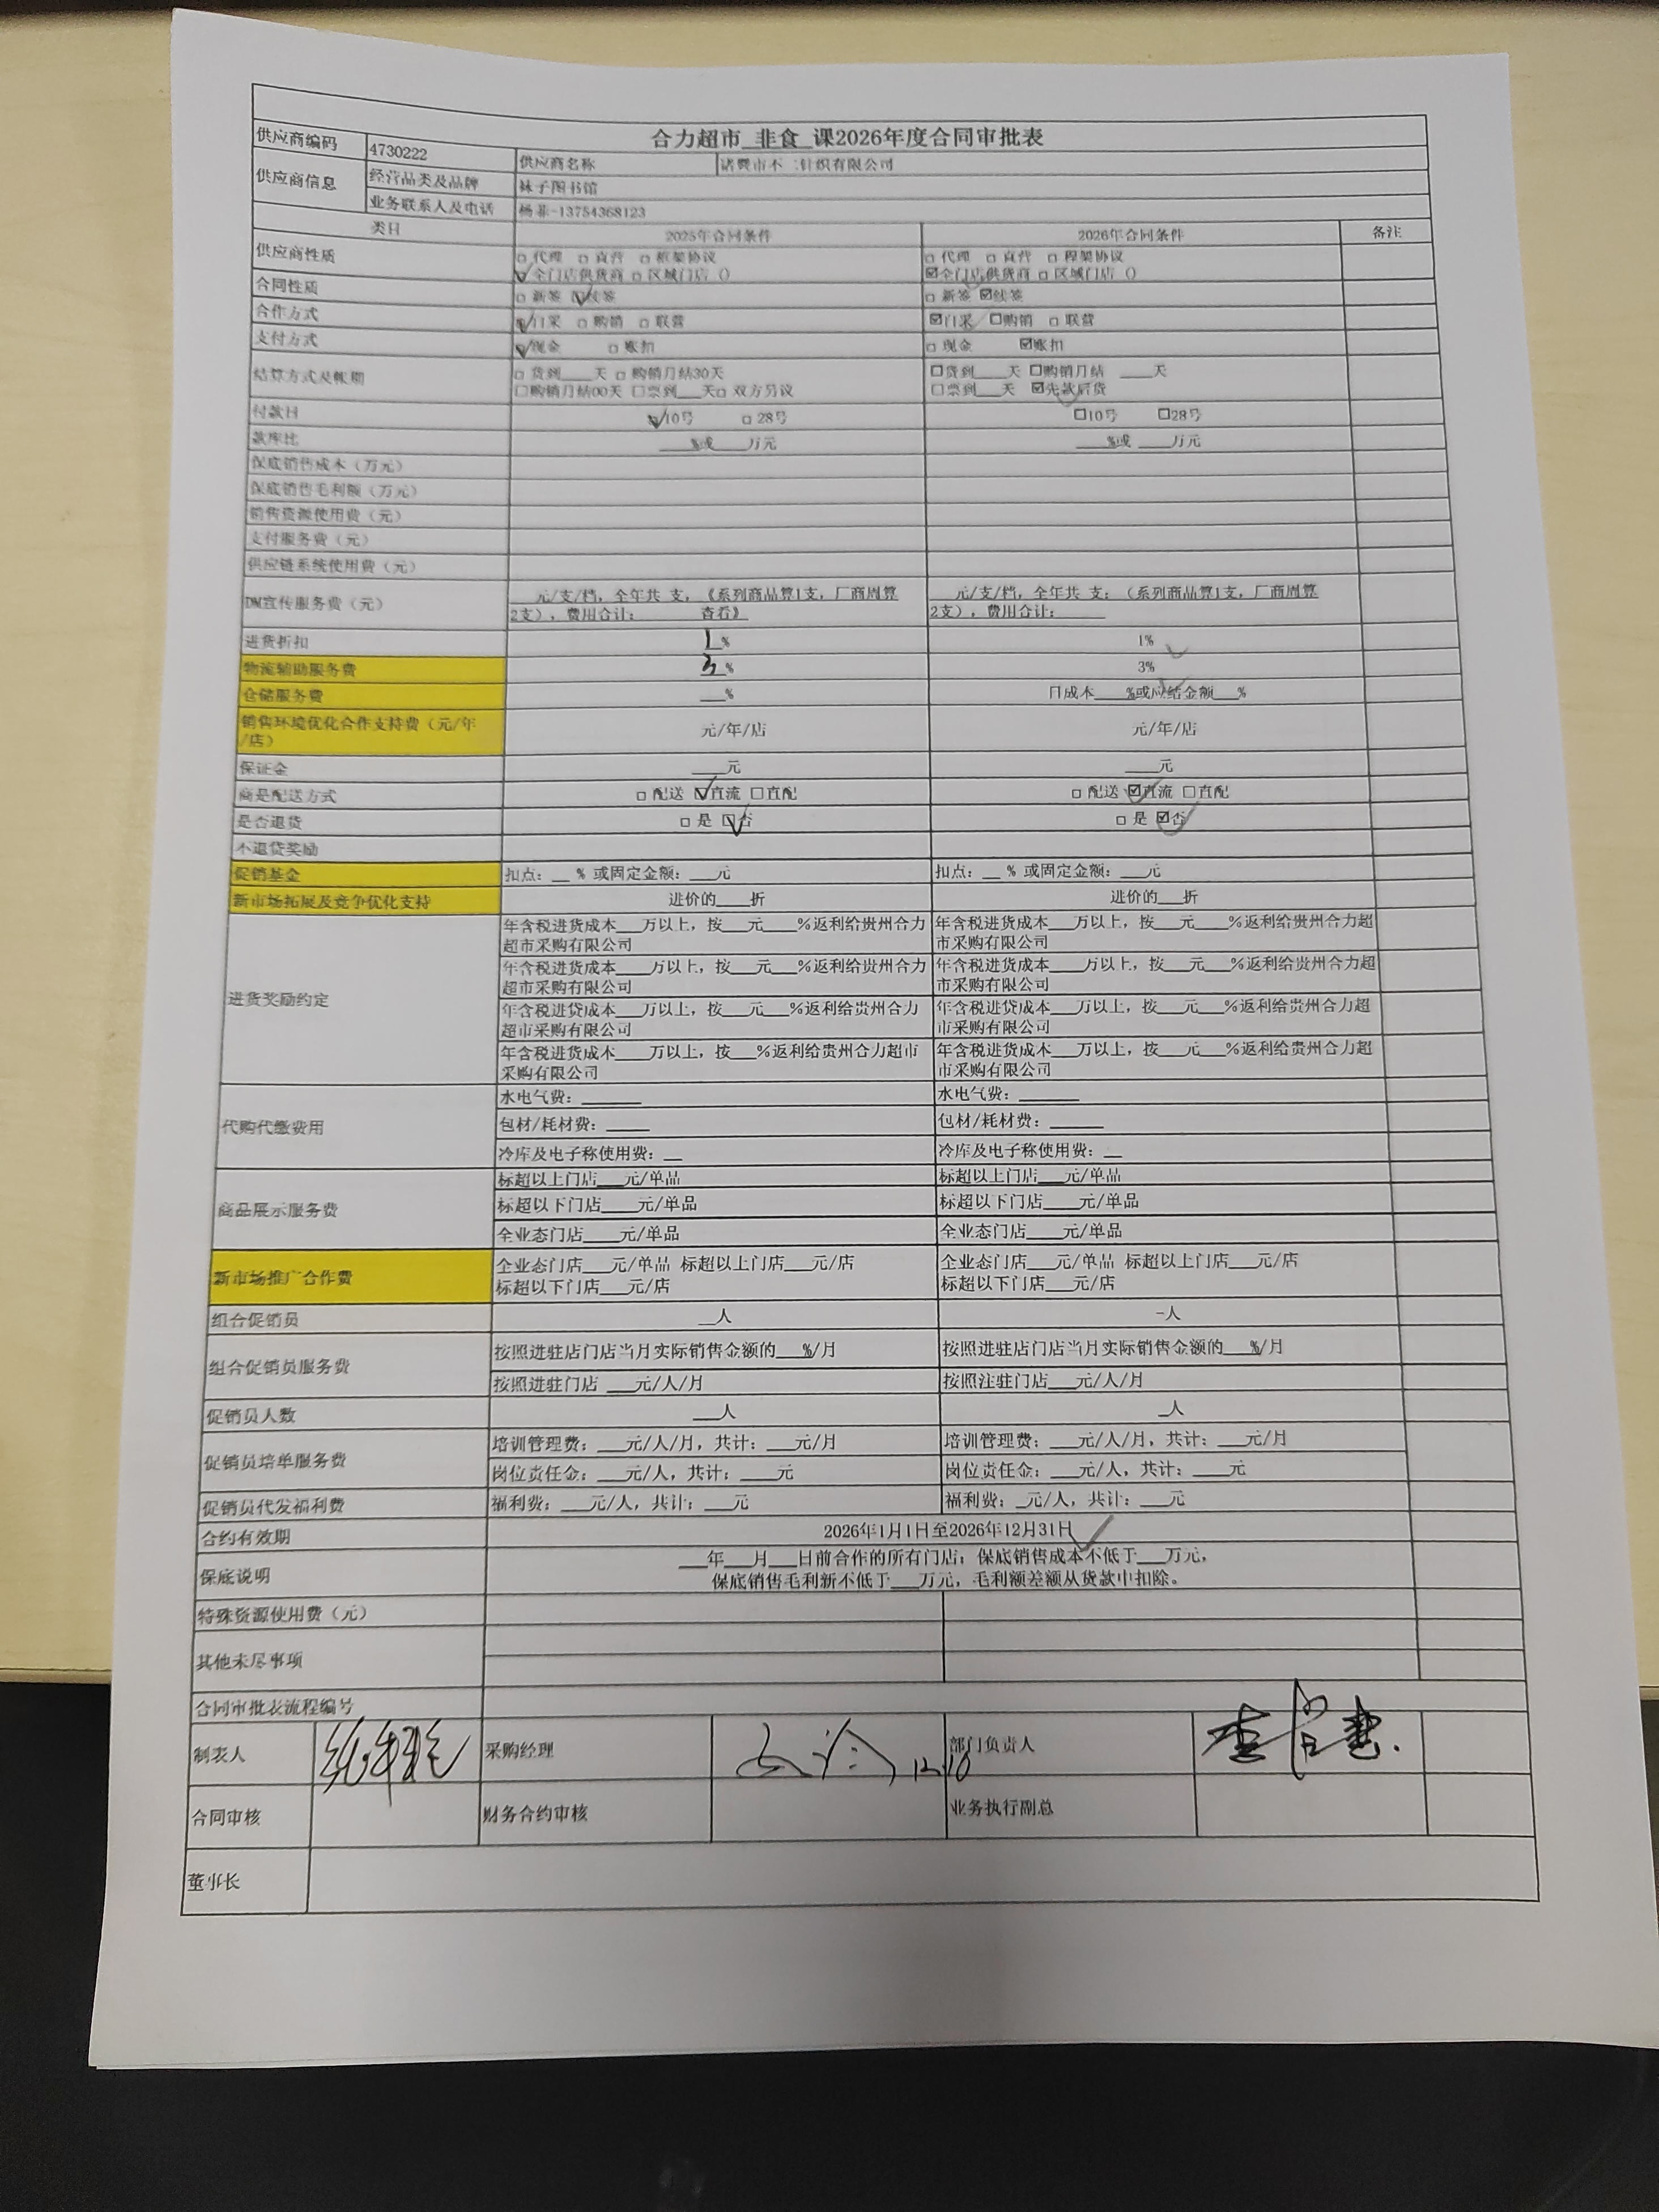 合力超市_非食_课2026年度合同审批表
供应商编码 4730222 供应商名称 诸暨市不二针织有限公司
供应商信息 经营品类及品牌 袜子图书馆
业务联系人及电话 杨 -13754368123
类目 2025年合同条件 2026年合同条件 备注
供应商性质 □ 代理 □ 直营 □ 框架协议 □ 代理 □ 直营 □ 框架协议
☑全门店供货商 □ 区域门店 () ☑全门店供货商 □ 区域门店 ()
合同性质 □ 新签 ☑续签 □ 新签 ☑续签
合作方式 ☑门采 □ 购销 □ 联营 ☑门采 □购销 □ 联营
支付方式 ☑现金 □ 账扣 □ 现金 ☑账扣
结算方式及帐期 □ 货到___天 □ 购销月结30天 □货到___天 □购销月结 ___天
□购销月结00天 □票到___天□ 双方另议 □票到___天 ☑先款后货
付款日 ☑10号 □ 28号 □10号 □28号
款库比 ___%或___万元 ___%或___万元
保底销售成本（万元）
保底销售毛利额（万元）
销售资源使用费（元）
支付服务费（元）
供应链系统使用费（元）
DM宣传服务费（元） ___元/支/档，全年共 支，《系列商品算1支，厂商周算 ___元/支/档，全年共 支；（系列商品算1支，厂商周算
2支），费用合计：___查看》 2支），费用合计：___
进货折扣 1% 1%
物流辅助服务费 3% 3%
仓储服务费 ___% 日成本___%或应结金额___%
销售环境优化合作支持费（元/年 元/年/店 元/年/店
/店）
保证金 ___元 ___元
商是配送方式 □ 配送 ☑直流 □直配 □ 配送 ☑直流 □直配
是否退货 □ 是 ☑否 □ 是 ☑否
不退货奖励
促销基金 扣点：__ % 或固定金额：___元 扣点：__ % 或固定金额：___元
新市场拓展及竞争优化支持 进价的___折 进价的___折
进货奖励约定 年含税进货成本___万以上，按___元____%返利给贵州合力 年含税进货成本___万以上，按___元____%返利给贵州合力超
超市采购有限公司 市采购有限公司
年含税进货成本____万以上，按___元___%返利给贵州合力 年含税进货成本____万以上，按___元___%返利给贵州合力超
超市采购有限公司 市采购有限公司
年含税进贷成本____万以上，按___元___%返利给贵州合力 年含税进贷成本____万以上，按___元___%返利给贵州合力超
超市采购有限公司 市采购有限公司
年含税进货成本____万以上，按___%返利给贵州合力超市 年含税进货成本____万以上，按___元___%返利给贵州合力超
采购有限公司 市采购有限公司
代购代缴费用 水电气费：______ 水电气费：______
包材/耗材费：____ 包材/耗材费：_____
冷库及电子称使用费：__ 冷库及电子称使用费：__
商品展示服务费 标超以上门店___元/单品 标超以上门店___元/单品
标超以下门店____元/单品 标超以下门店____元/单品
全业态门店____元/单品 全业态门店____元/单品
新市场推广合作费 全业态门店___元/单品 标超以上门店___元/店 全业态门店___元/单品 标超以上门店___元/店
标超以下门店___元/店 标超以下门店___元/店
组合促销员 __人 -人
组合促销员服务费 按照进驻店门店当月实际销售金额的___%/月 按照进驻店门店当月实际销售金额的___%/月
按照进驻门店 ___元/人/月 按照注驻门店___元/人/月
促销员人数 ___人 __人
促销员培单服务费 培训管理费：___元/人/月，共计：___元/月 培训管理费；___元/人/月，共计：___元/月
岗位责任金：___元/人，共计：____元 岗位责任金：___元/人，共计：____元
促销员代发福利费 福利费：___元/人，共计：___元 福利费：_元/人，共计：___元
合约有效期 2026年1月1日至2026年12月31日
保底说明 ___年___月___日前合作的所有门店；保底销售成本不低于___万元，
保底销售毛利新不低于___万元，毛利额差额从货款中扣除。
特殊资源使用费（元）
其他未尽事项
合同审批表流程编号
制表人 采购经理 12.10 部门负责人
合同审核 财务合约审核 业务执行副总
董事长